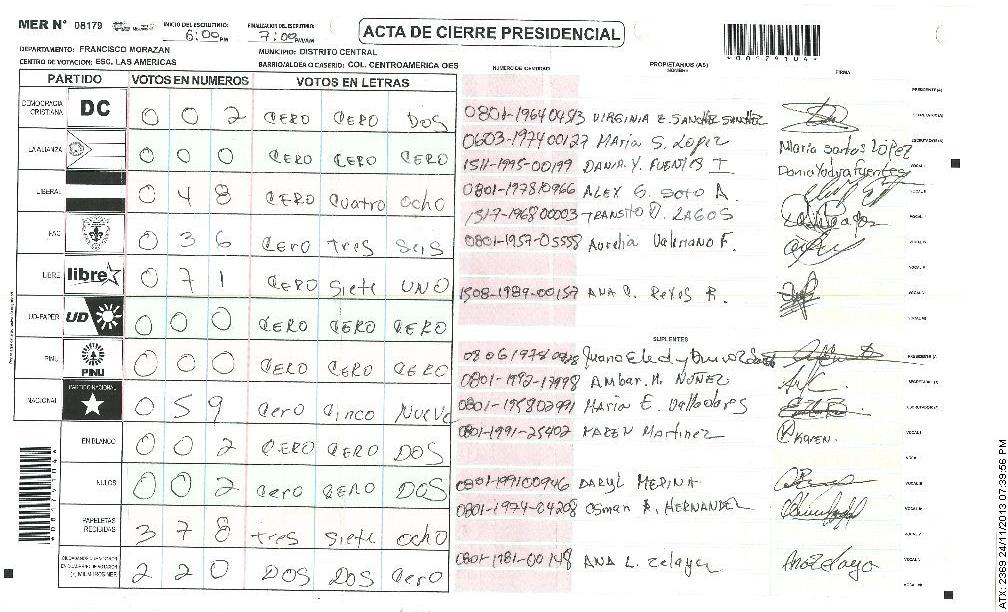 MER N° 08179
INICIO DEL ESCRUTINIO: 6:00 PM
FINALIZACION DEL ESCRUTINIO: 7:00 PM/AM
ACTA DE CIERRE PRESIDENCIAL
*08179104*
DEPARTAMENTO: FRANCISCO MORAZAN
MUNICIPIO: DISTRITO CENTRAL
CENTRO DE VOTACION: ESC. LAS AMERICAS
BARRIO/ALDEA O CASERIO: COL. CENTROAMERICA OES
NUMERO DE IDENTIDAD PROPIETARIOS (AS) NOMBRE FIRMA
PARTIDO VOTOS EN NUMEROS VOTOS EN LETRAS
DEMOCRACIA CRISTIANA DC 0 0 2 CERO CERO DOS
LA ALIANZA 0 0 0 CERO CERO CERO
LIBERAL 0 4 8 CERO Cuatro ocho
PAC 0 3 6 Cero Tres Seis
LIBRE libre 0 7 1 CERO Siete UNO
UD-FAPER UD 0 0 0 CERO CERO CERO
PINU PINU 0 0 0 CERO CERO CERO
NACIONAL PARTIDO NACIONAL 0 5 9 Cero Cinco Nueve
EN BLANCO 0 0 2 CERO CERO DOS
NULOS 0 0 2 Cero CERO DOS
PAPELETAS RECIBIDAS 3 7 8 Tres Siete ocho
2 2 0 DOS DOS Cero
PRESIDENTE(A)
VIRGINIA E. SANCHEZ SANCHEZ
SECRETARIO(A)
0603-1974 00127 Maria S. Lopez Maria Santos LÓPEZ
ESCRUTADOR(A)
1511-1995-00199 DANIA Y. FUENTES T
VOCAL I
0801-197810966 ALEX G. SOTO A.
VOCAL II
1517-1968 00003 TRANSITO O. LAGOS
0801-1957-05558 Aurelia Valeriano F.
1508-1989-00157 ANA C. Reyes R.
SUPLENTES
PRESIDENTE (A)
0801-1992-17998 AMBAR. H. NUÑEZ
SECRETARIO (A)
0801-195802991 Maria E. Valladares
ESCRUTADOR(A)
0801-1991-25402 KAREN Martinez KAREN.
VOCAL I
0801-199100946 DARYL MEDINA
0801-1974-04208 OSMAN A. HERNANDEZ
ANA L. Zelaya
ATX: 2369 24/11/2013 07:39:56 PM